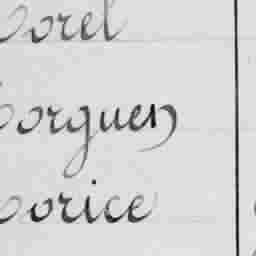 orel
orguen
orice